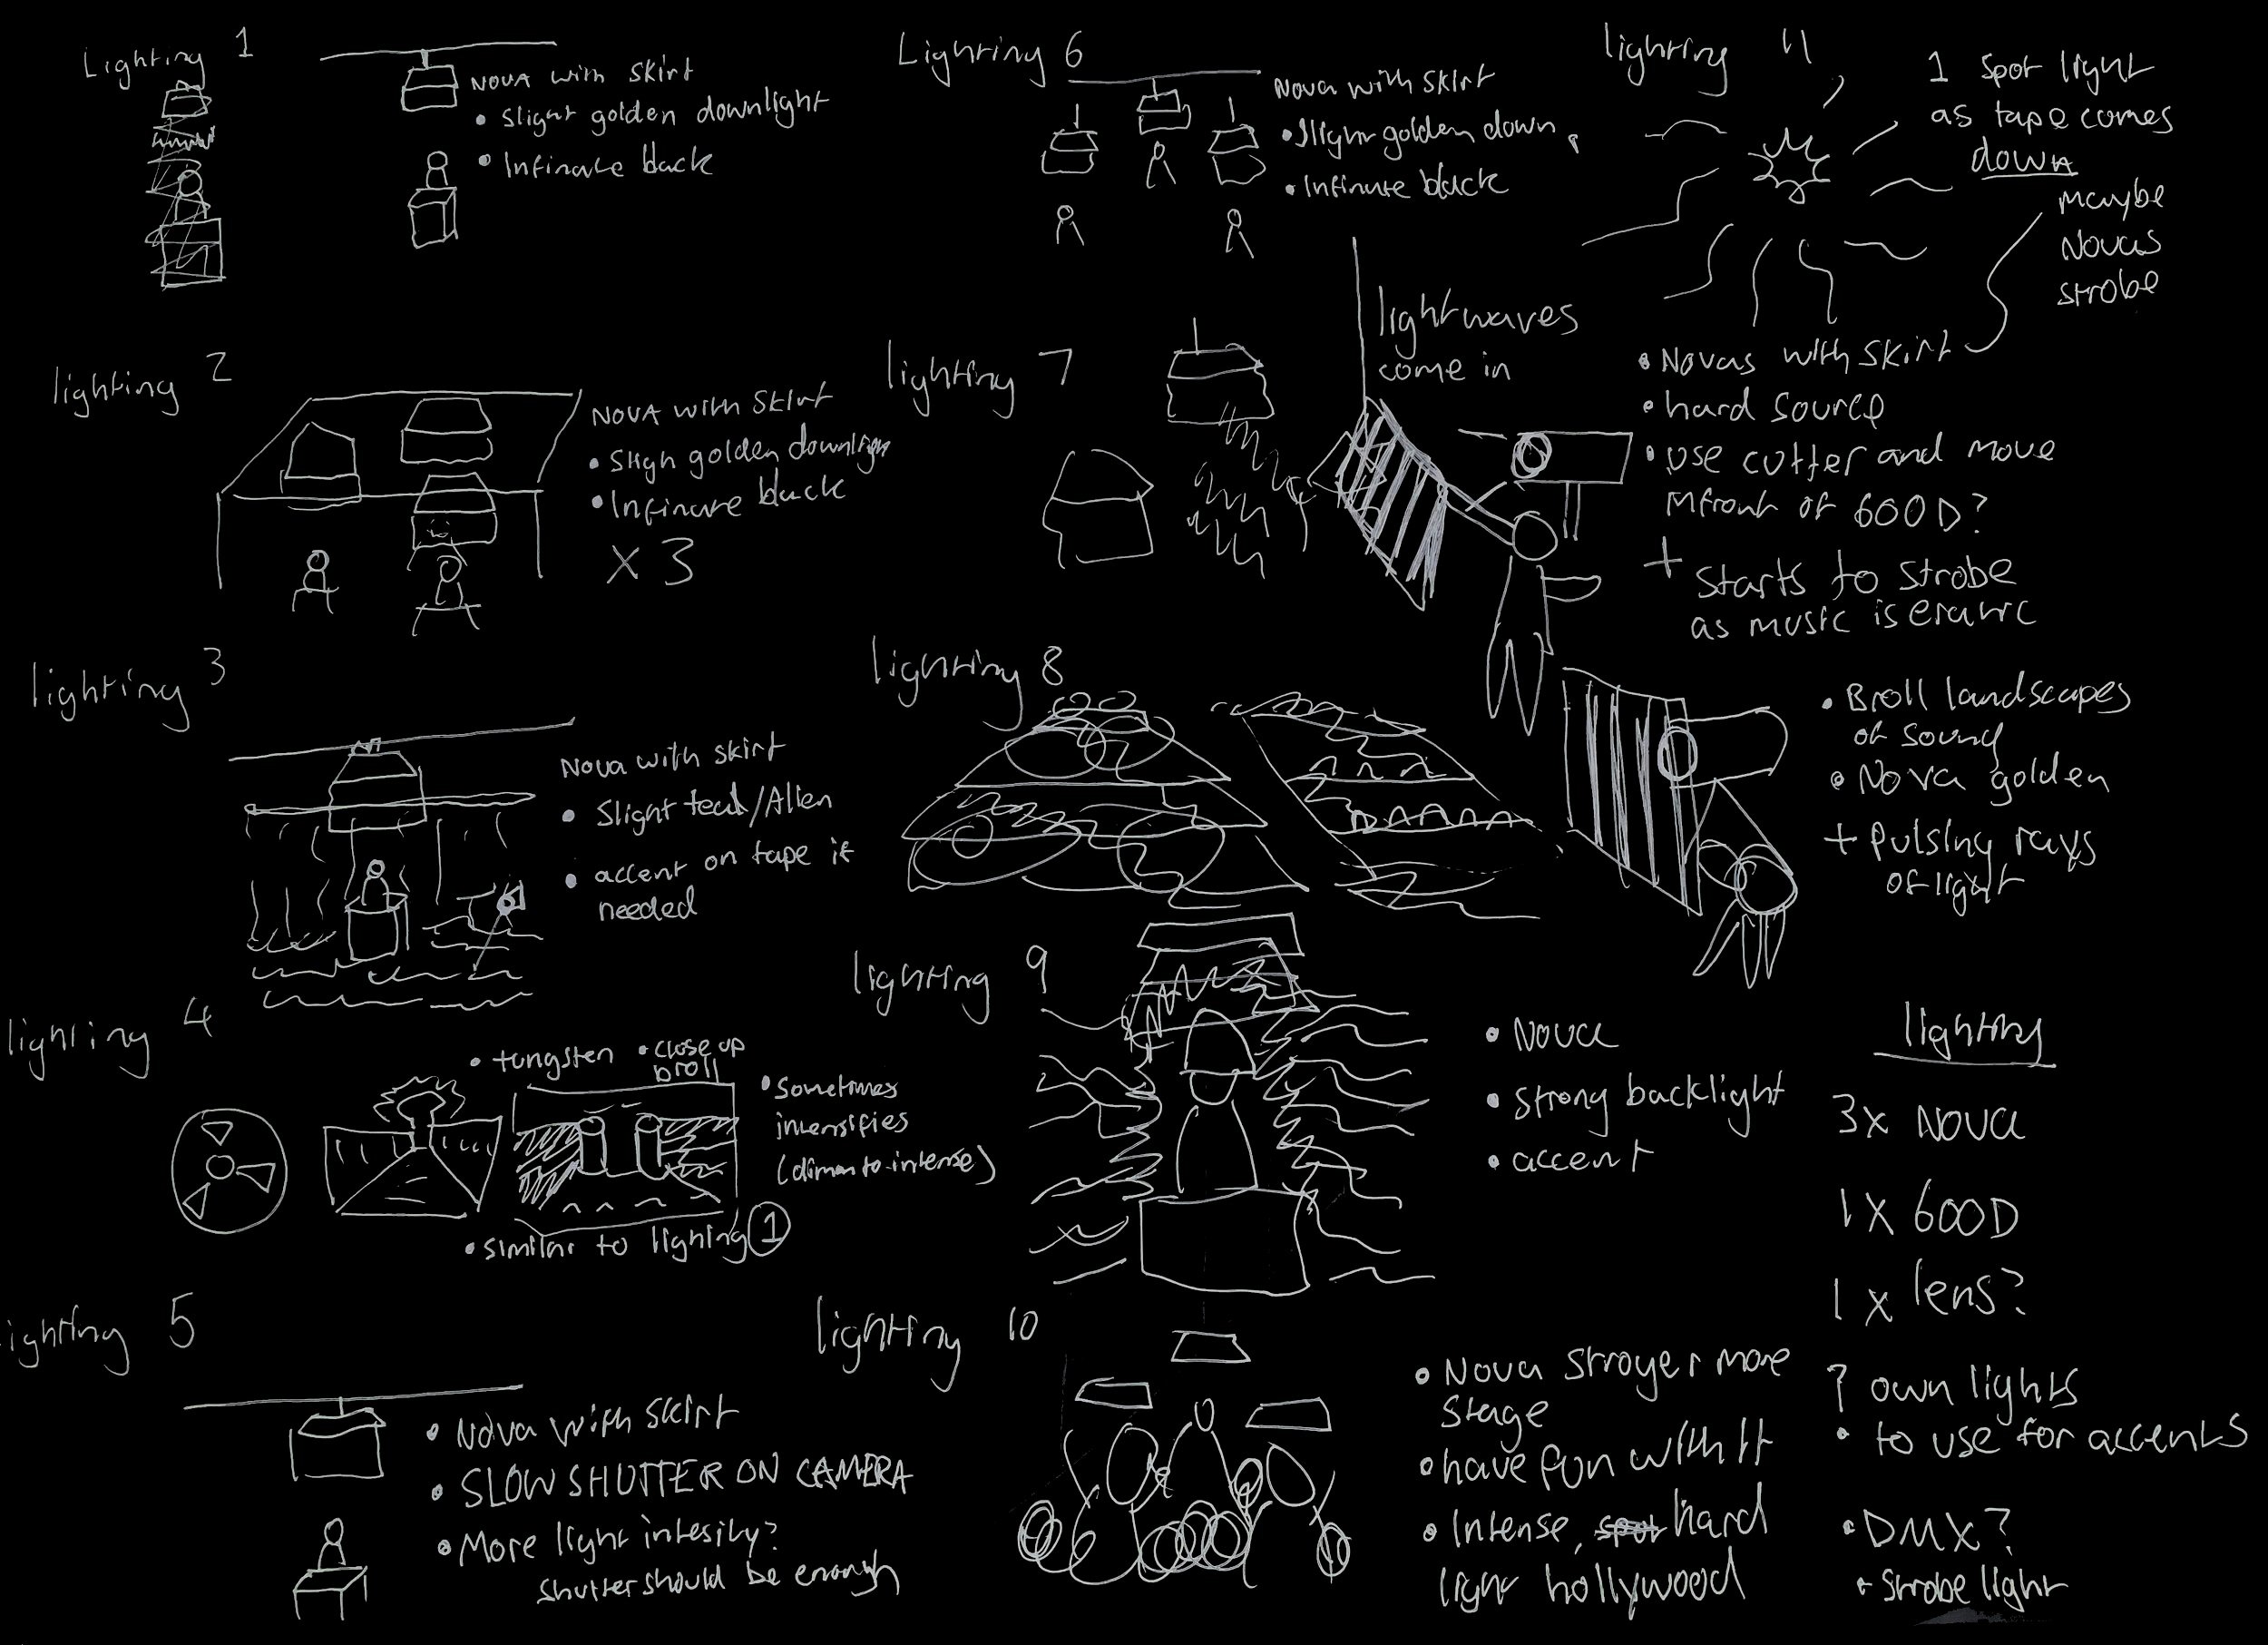 Lighting 1
NOVA with skirt
• slight golden downlight
• Infinate back
lighting 2
NOVA with skirt
• Sligh golden downligh
• Infinate black
X 3
lighting 3
Nova with skirt
• Slight teal/Alien
• accent on tape if
needed
lighting 4
• tungsten
• close up
broll
• Sometimes
intensifies
(dimm to intense)
• similar to lighing 1
lighting 5
• Nova with skirt
• SLOW SHUTTER ON CAMERA
• More light intesity?
shutter should be enough
Lighting 6
Nova with skirt
• slight golden down
• Infinate black
lighting 7
lightwaves
come in
• Novas with skirt
• hard source
• use cutter and move
infront of 600D?
+ Starts to strobe
as music is eratic
lighting 8
• Broll landscapes
of sound
• Nova golden
+ pulsing rays
of light
lighting 9
• Nova
• strong backlight
• accent
lighting 10
• Nova stronger more
stage
• have fun with it
• Intense, hard
light hollywood
lighting 11
1 spot light
as tape comes
down
maybe
Novas
strobe
lighting
3x Nova
1X 600D
1 x lens?
? own lights
• to use for accents
• DMX?
+ strobe light